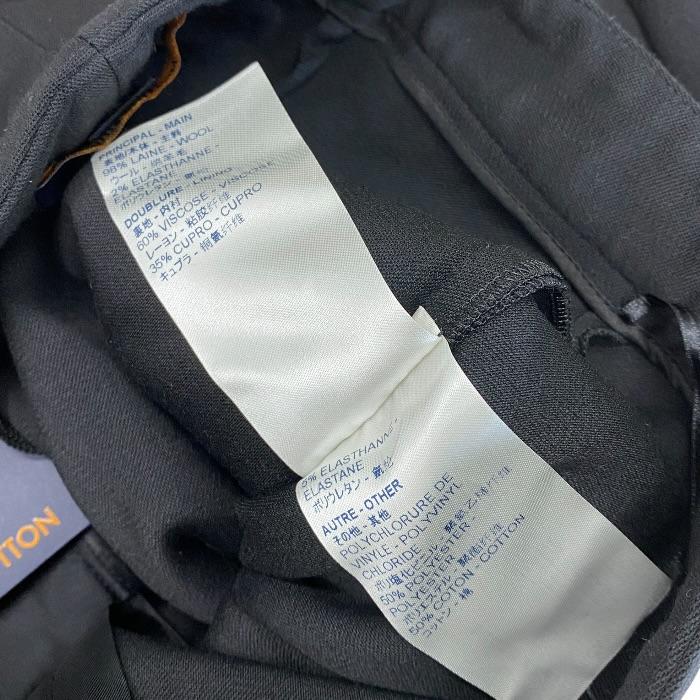 PRINCIPAL - MAIN
表地/本体 - 主料
98% LAINE - WOOL
ウール - 绵羊毛
2% ELASTHANNE -
ELASTANE
ポリウレタン - 氨纶
DOUBLURE - LINING
裏地 - 内衬
60% VISCOSE - VISCOSE
レーヨン - 粘胶纤维
35% CUPRO - CUPRO
キュプラ - 铜氨纤维
5% ELASTHANNE -
ELASTANE
ポリウレタン - 氨纶
AUTRE - OTHER
その他 - 其他
POLYCHLORURE DE
VINYLE - POLYVINYL
CHLORIDE
ポリ塩化ビニール - 聚氯乙烯纤维
50% POLYESTER -
POLYESTER
ポリエステル - 聚酯纤维
50% COTON - COTTON
コットン - 棉
TTON